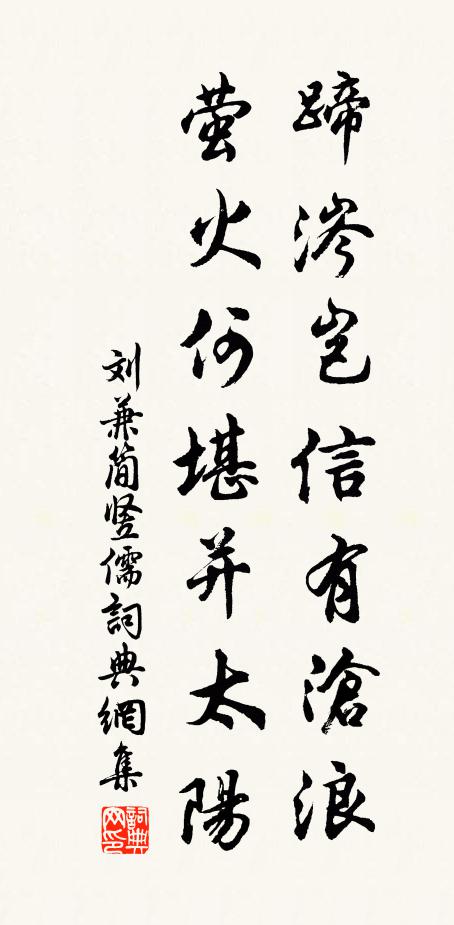 蹄涔岂信有滄浪
萤火何堪并太陽
刘兼简竖儒詞典網集
詞典网印